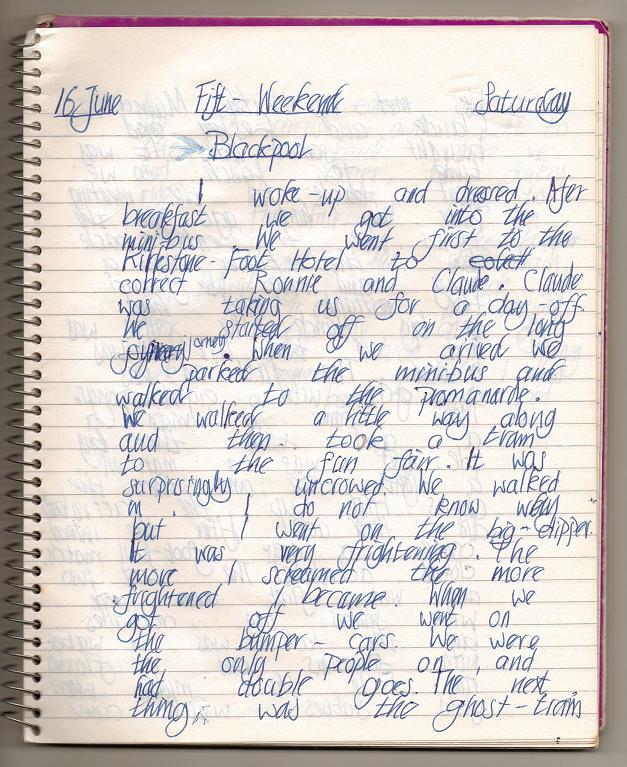 16 June Fift - Weekend Saturday
Blackpool
I woke-up and dressed. After
breakfast we got into the
minibus. We went first to the
Kirkstone-Foot Hotel to
correct Ronnie and Claude. Claude
was taking us for a day-off.
We started off on the long
jorney. When we arived we
parked the minibus and
walked to the Promanarde.
We walked a little way along
and then took a tram
to the fun fair. It was
surprisingly uncrowed. We walked
in. I do not know why
but I went on the big-dipper.
It was very frightening. The
more I screamed the more
frightened I became. When we
got off we went on
the bumper-cars. We were
the only people on, and
had double goes. The next
thing was the ghost-train